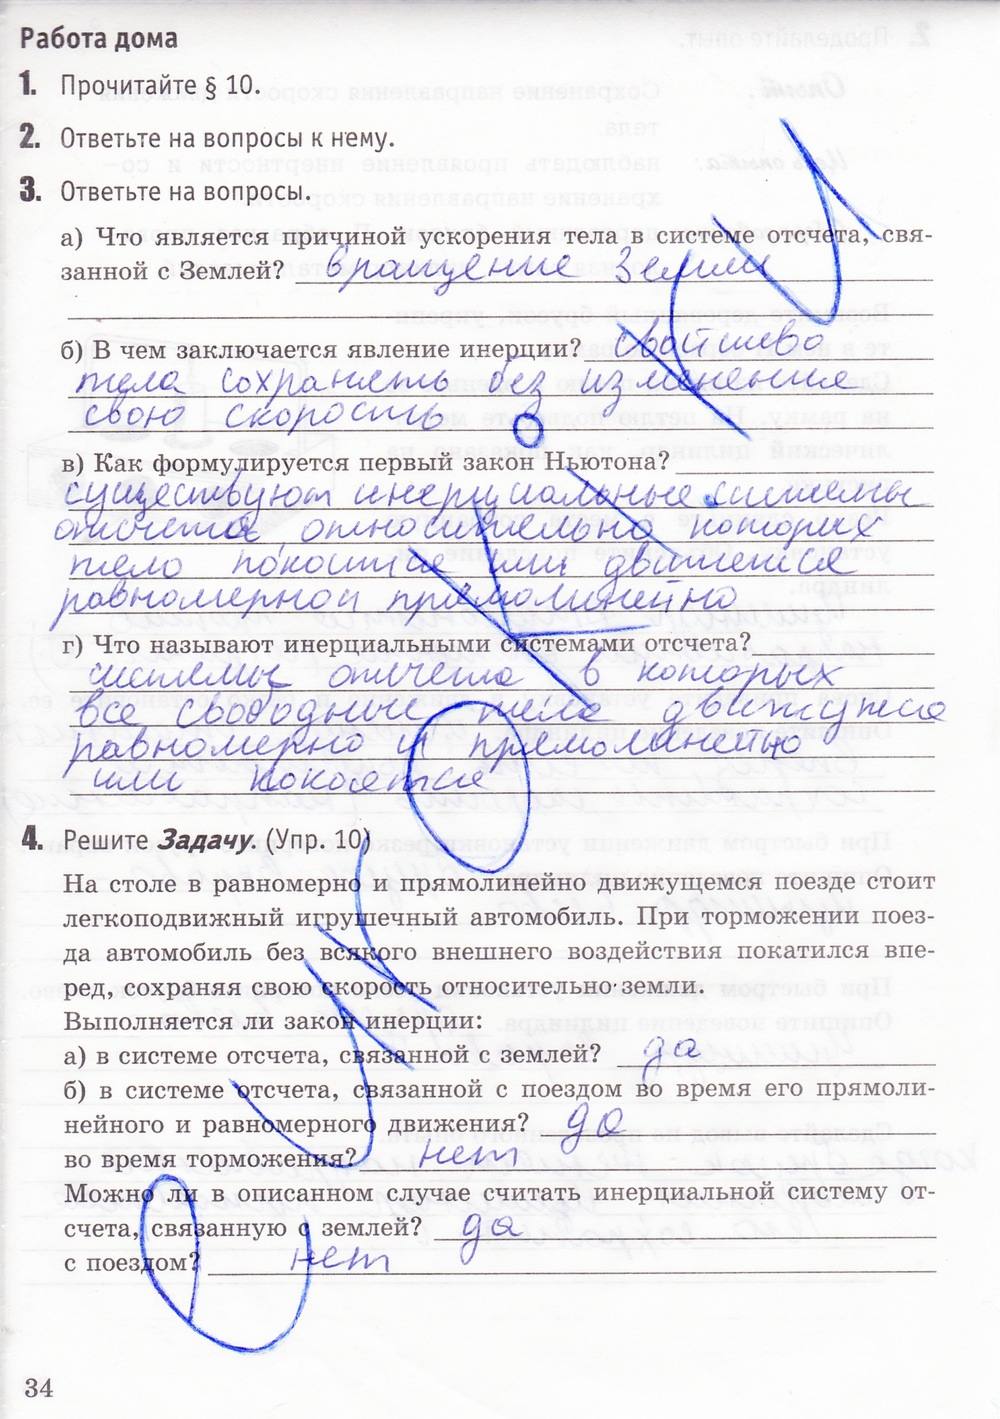 Работа дома
1. Прочитайте § 10.
2. Ответьте на вопросы к нему.
3. Ответьте на вопросы.
а) Что является причиной ускорения тела в системе отсчета, свя-
занной с Землей? вращение Земли
б) В чем заключается явление инерции? свойтсиево
тела сохранять без изменения
свою скорость
в) Как формулируется первый закон Ньютона?
существуют инерциальные системы
отсчета, относительно которых
тело покоится или движется
равномерно и прямолинейно
г) Что называют инерциальными системами отсчета?
системы отсчета в которых
все свободные тела движутся
равномерно и прямолинейно
или покоятся
4. Решите Задачу. (Упр. 10)
На столе в равномерно и прямолинейно движущемся поезде стоит
легкоподвижный игрушечный автомобиль. При торможении поез-
да автомобиль без всякого внешнего воздействия покатился впе-
ред, сохраняя свою скорость относительно земли.
Выполняется ли закон инерции:
а) в системе отсчета, связанной с землей? да
б) в системе отсчета, связанной с поездом во время его прямоли-
нейного и равномерного движения? да
во время торможения? нет
Можно ли в описанном случае считать инерциальной систему от-
счета, связанную с землей? да
с поездом? нет
34